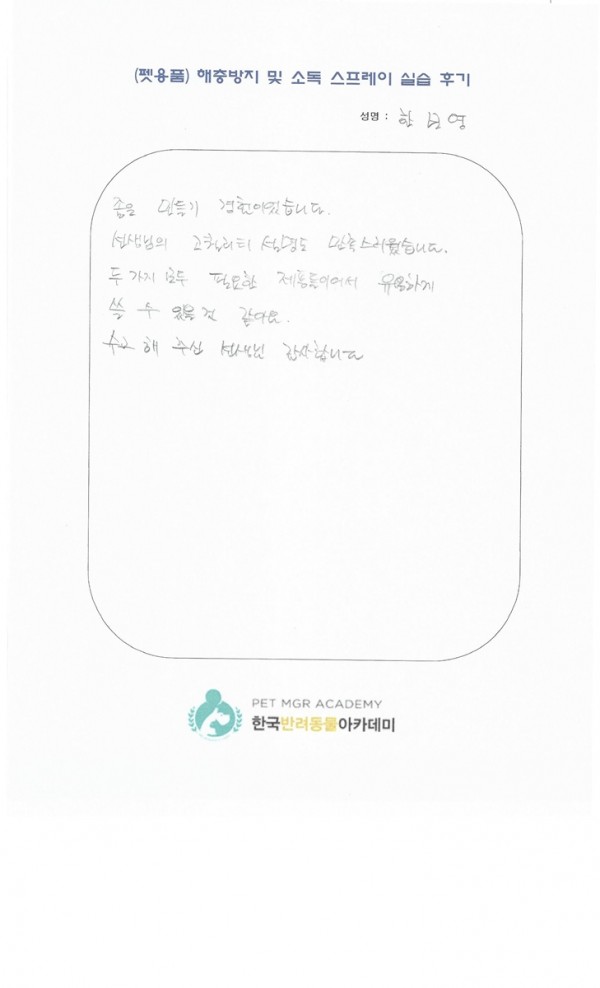 (펫용품) 해충방지 및 소독 스프레이 실습 후기
성명 : 한보영
좋은 만들기 경험이었습니다.
선생님의 고퀄리티 설명도 만족스러웠습니다.
두 가지 모두 필요한 제품들이어서 유용하게
쓸 수 있을 것 같아요.
수고해 주신 선생님 감사합니다
PET MGR ACADEMY
한국반려동물아카데미